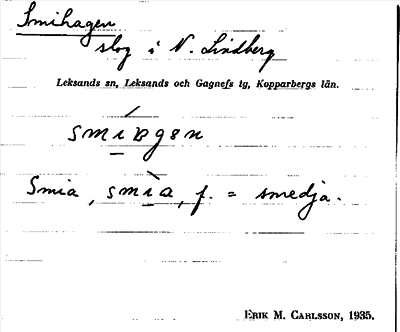 Smihagen
slog i N. Lindberg
Leksands sn, Leksands och Gagnefs tg, Kopparbergs län.
smíɐgen
Smia, smìa, f. = smedja.
Erik M. Carlsson, 1935.